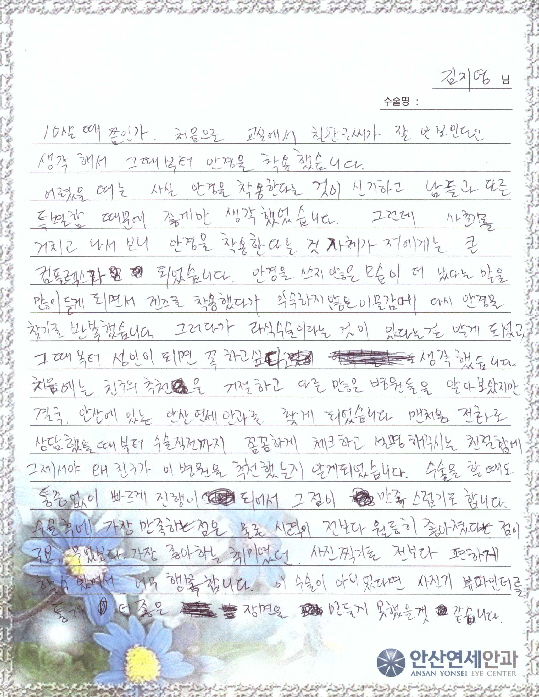 김지영 님
수술명 :
10살 때 쯤인가. 처음으로 교실에서 칠판글씨가 잘 안보인다고
생각해서 그때부터 안경을 착용했습니다.
어렸을 때는 사실 안경을 착용한다는 것이 신기하고 남들과 다른
특별함 때문에 좋게만 생각했었습니다. 그런데 사춘기를
거치고 나서 보니 안경을 착용한다는 것 자체가 저에게는 큰
컴플렉스가 되었습니다. 안경을 쓰지 않은 모습이 더 낫다는 말을
많이 듣게 되면서 렌즈를 착용했다가 익숙하지않은 이물감에 다시 안경을
찾기를 반복했습니다. 그러다가 라식수술이라는 것이 있다는걸 알게 되었고,
그때부터 성인이 되면 꼭 하고싶다고 생각했습니다.
처음에는 친구의 추천을 거절하고 다른 많은 병원들을 알아보았지만
결국, 안산에 있는 안산연세안과를 찾게 되었습니다. 맨처음 전화로
상담했을 때부터 수술직전까지 꼼꼼하게 체크하고 설명해주시는 친절함에
그제서야 왜 친구가 이 병원을 추천했는지 알게되었습니다. 수술을 할 때도
통증없이 빠르게 진행이 되어서 그점이 만족스럽기도 합니다.
수술후에 가장 만족하는 점은 물론 시력이 전보다 월등히 좋아졌다는 점이
무엇보다 가장 좋아하는 취미였던 사진찍기를 전보다 편하게
할수 있어서 너무 행복합니다. 이 수술이 아니었다면 사진기 뷰파인더를
통해 더 좋은 장면을 만들지 못했을것 같습니다.
안산연세안과
ANSAN YONSEI EYE CENTER